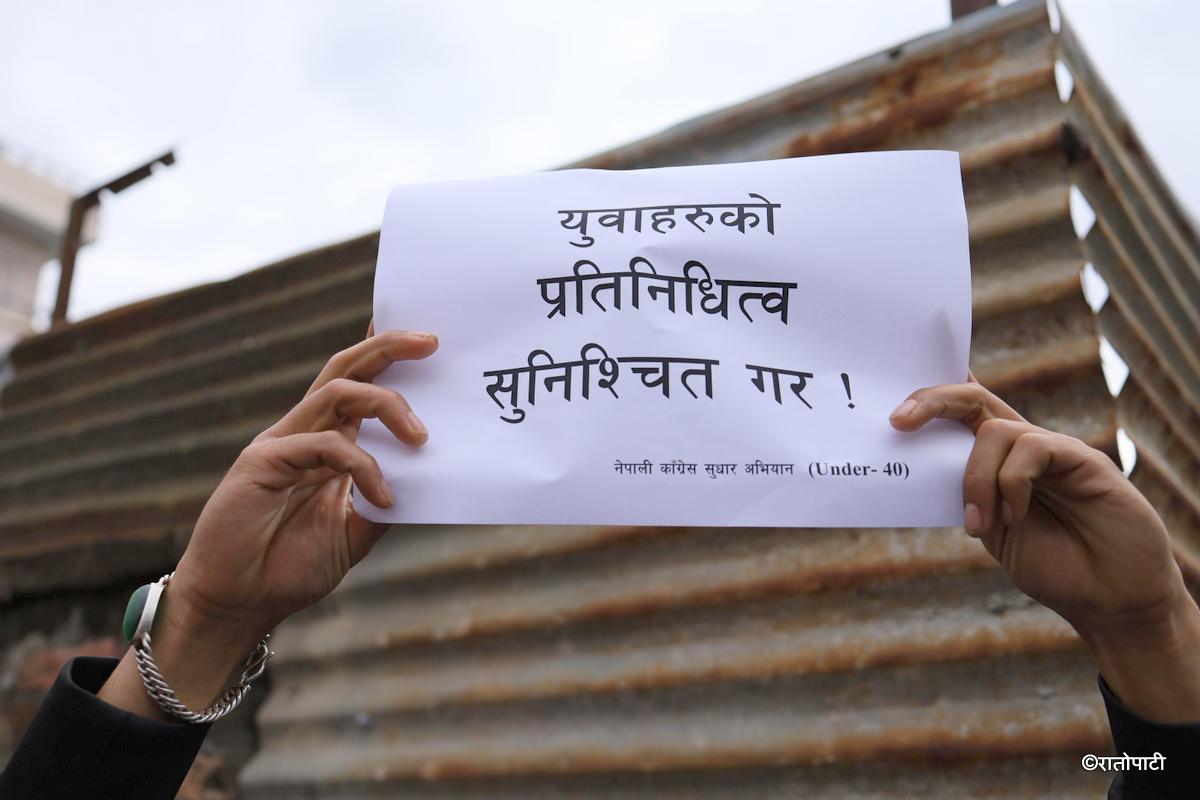 युवाहरुको
प्रतिनिधित्व
सुनिश्चित गर !
नेपाली काँग्रेस सुधार अभियान (Under- 40)
©रातोपाटी